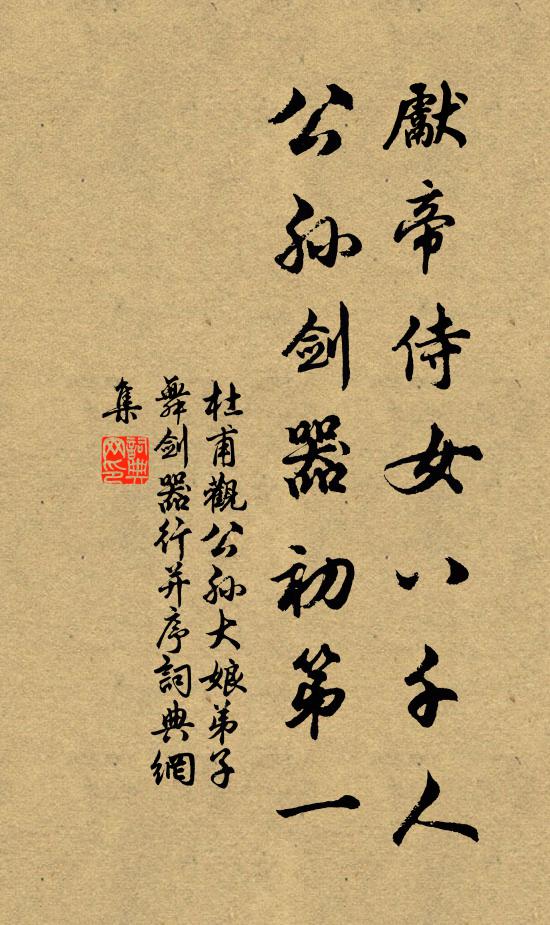 獻帝侍女八千人
公孙剑器初第一
杜甫觀公孙大娘弟子
舞剑器行并序詞典網
集
詞典网印